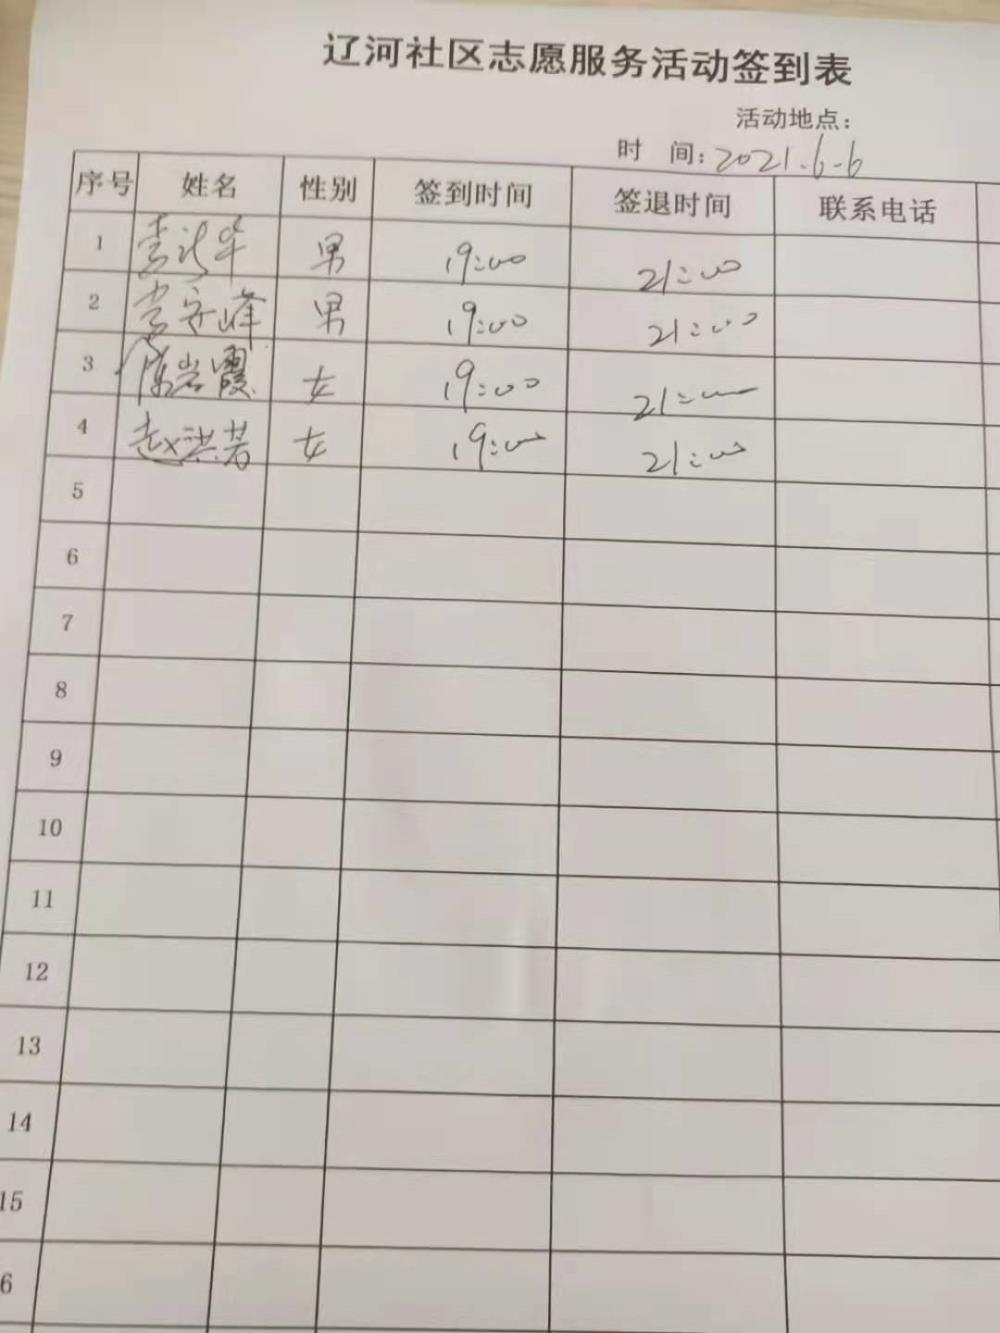 辽河社区志愿服务活动签到表
活动地点:
时 间: 2021.6-6
序号 姓名 性别 签到时间 签退时间 联系电话
1 男 19:00 21:00
2 男 19:00 21:00
3 陈岩霞 女 19:00 21:00
4 赵洪若 女 19:00 21:00
5
6
7
8
9
10
11
12
13
14
15
6